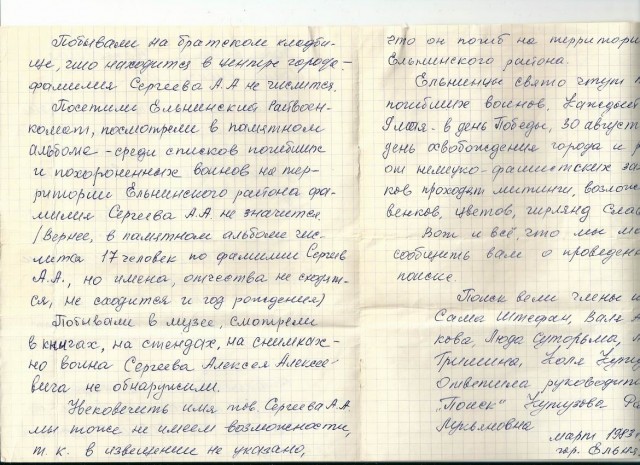 Побывали на братском кладби-
ще, что находится в центре города -
фамилия Сергеева А.А не числится.
Посетили Ельнинский Райвоен-
комат, посмотрели в памятном
альбоме - среди списков погибших
и похороненных воинов на тер-
ритории Ельнинского района фа-
милия Сергеева А.А. не значится.
(Вернее, в памятном альбоме чис-
лится 17 человек по фамилии Сергеев
А.А., но имена, отчества не сходят-
ся, не сходится и год рождения)
Побывали в музее, смотрели
в книгах, на стендах, на снимках -
но воина Сергеева Алексея Алексее-
вича не обнаружили.
Увековечить имя тов Сергеева А.А.
мы тоже не имеем возможности,
т.к. в извещение не указано,
что он погиб на территори
Ельнинского района.
Ельнинцы свято чтут
погибших воинов. Каждый
9 мая - в день Победы, 30 август
день освобождения города и р
от немецко-фашистских за
ков проходят митинги, возлож
венков, цветов, гирлянд Сла
Вот и всё, что мы мо
сообщить вам о проведен
поиске.
Поиск вели члены
Саша Штефан, Валя
кова, Люда Суторьма,
Гришина, Коля
Ответила руководит
"Поиск" Кутузова
Лукьяновна
март 1983
гор. Ельня